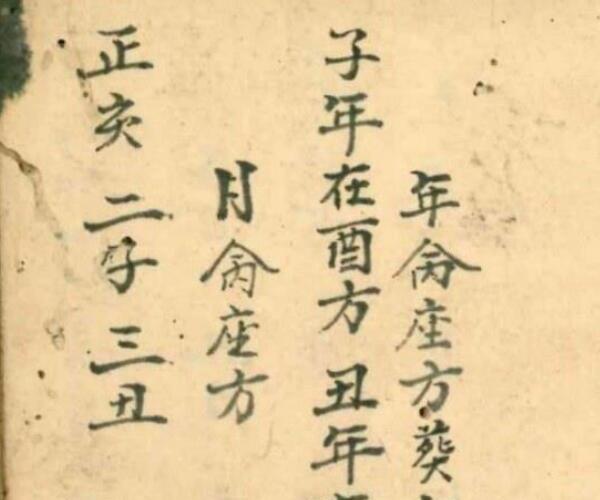 年禽座方葬
子年在酉方 丑年
月禽座方
正亥 二子 三丑